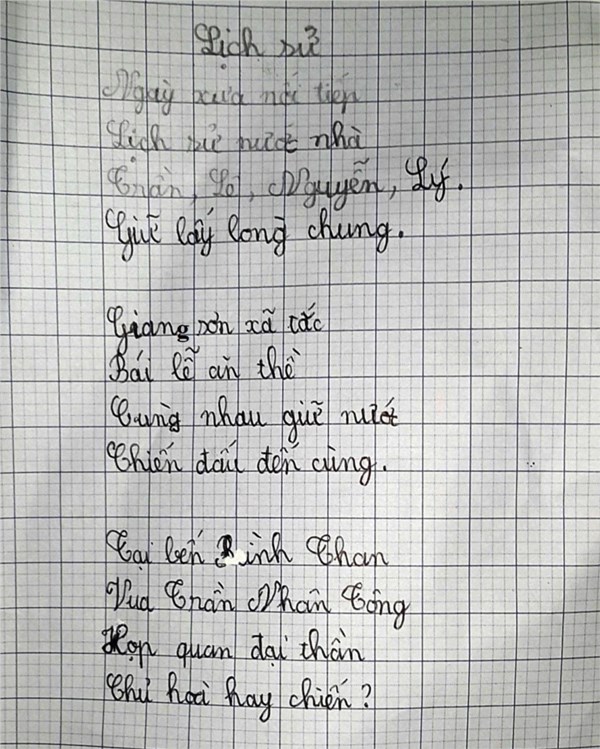 Lịch sử
Ngaỳ xưa nối tiếp
Lịch sử nướt nhà
Trần, Lê, Nguyễn, Lý.
Giữ lấy long chung.
Giang sơn xã tắc
Bái lễ ăn thề
Cùng nhau giữ nướt
Chiến đấu đến cùng.
Tại bến Bình Than
Vua Trần Nhân Tông
Họp quan đại thần
Chủ hoà hay chiến?